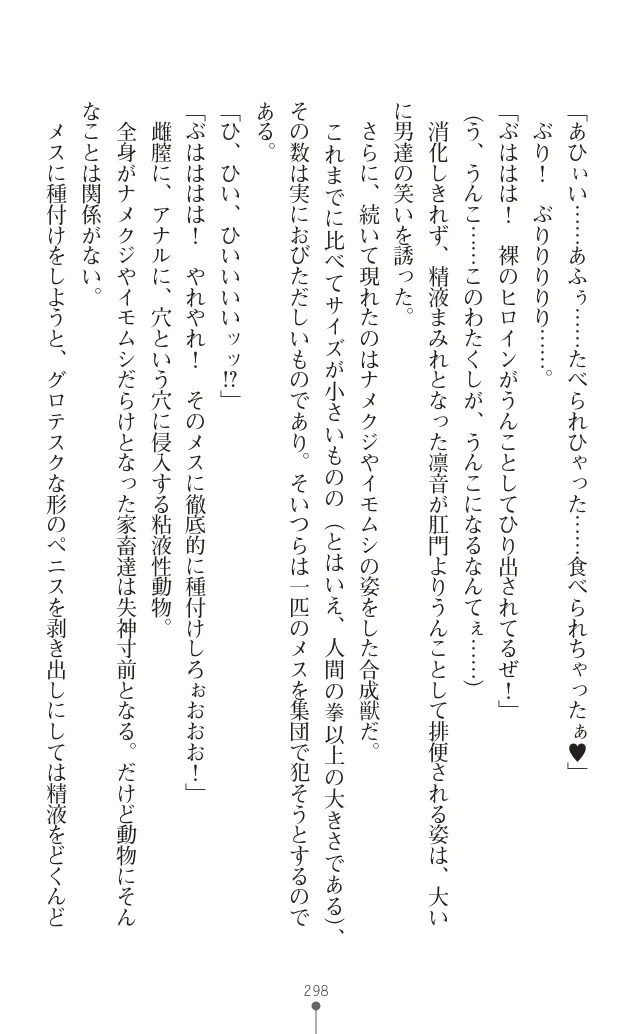 「あひぃい……あふぅ……たべられひゃった……食べられちゃったぁ♥」
ぶり！　ぶりりりり……。
「ぶははは！　裸のヒロインがうんことしてひり出されてるぜ！」
（う、うんこ……このわたくしが、うんこになるなんてぇ……）
消化しきれず、精液まみれとなった凛音が肛門よりうんことして排便される姿は、大い
に男達の笑いを誘った。
さらに、続いて現れたのはナメクジやイモムシの姿をした合成獣だ。
これまでに比べてサイズが小さいものの（とはいえ、人間の拳以上の大きさである）、
その数は実におびただしいものであり。そいつらは一匹のメスを集団で犯そうとするので
ある。
「ひ、ひい、ひいいいいッッ!?」
「ぶはははは！　やれやれ！　そのメスに徹底的に種付けしろぉおおお！」
雌膣に、アナルに、穴という穴に侵入する粘液性動物。
全身がナメクジやイモムシだらけとなった家畜達は失神寸前となる。だけど動物にそん
なことは関係がない。
メスに種付けをしようと、グロテスクな形のペニスを剥き出しにしては精液をどくんど
298